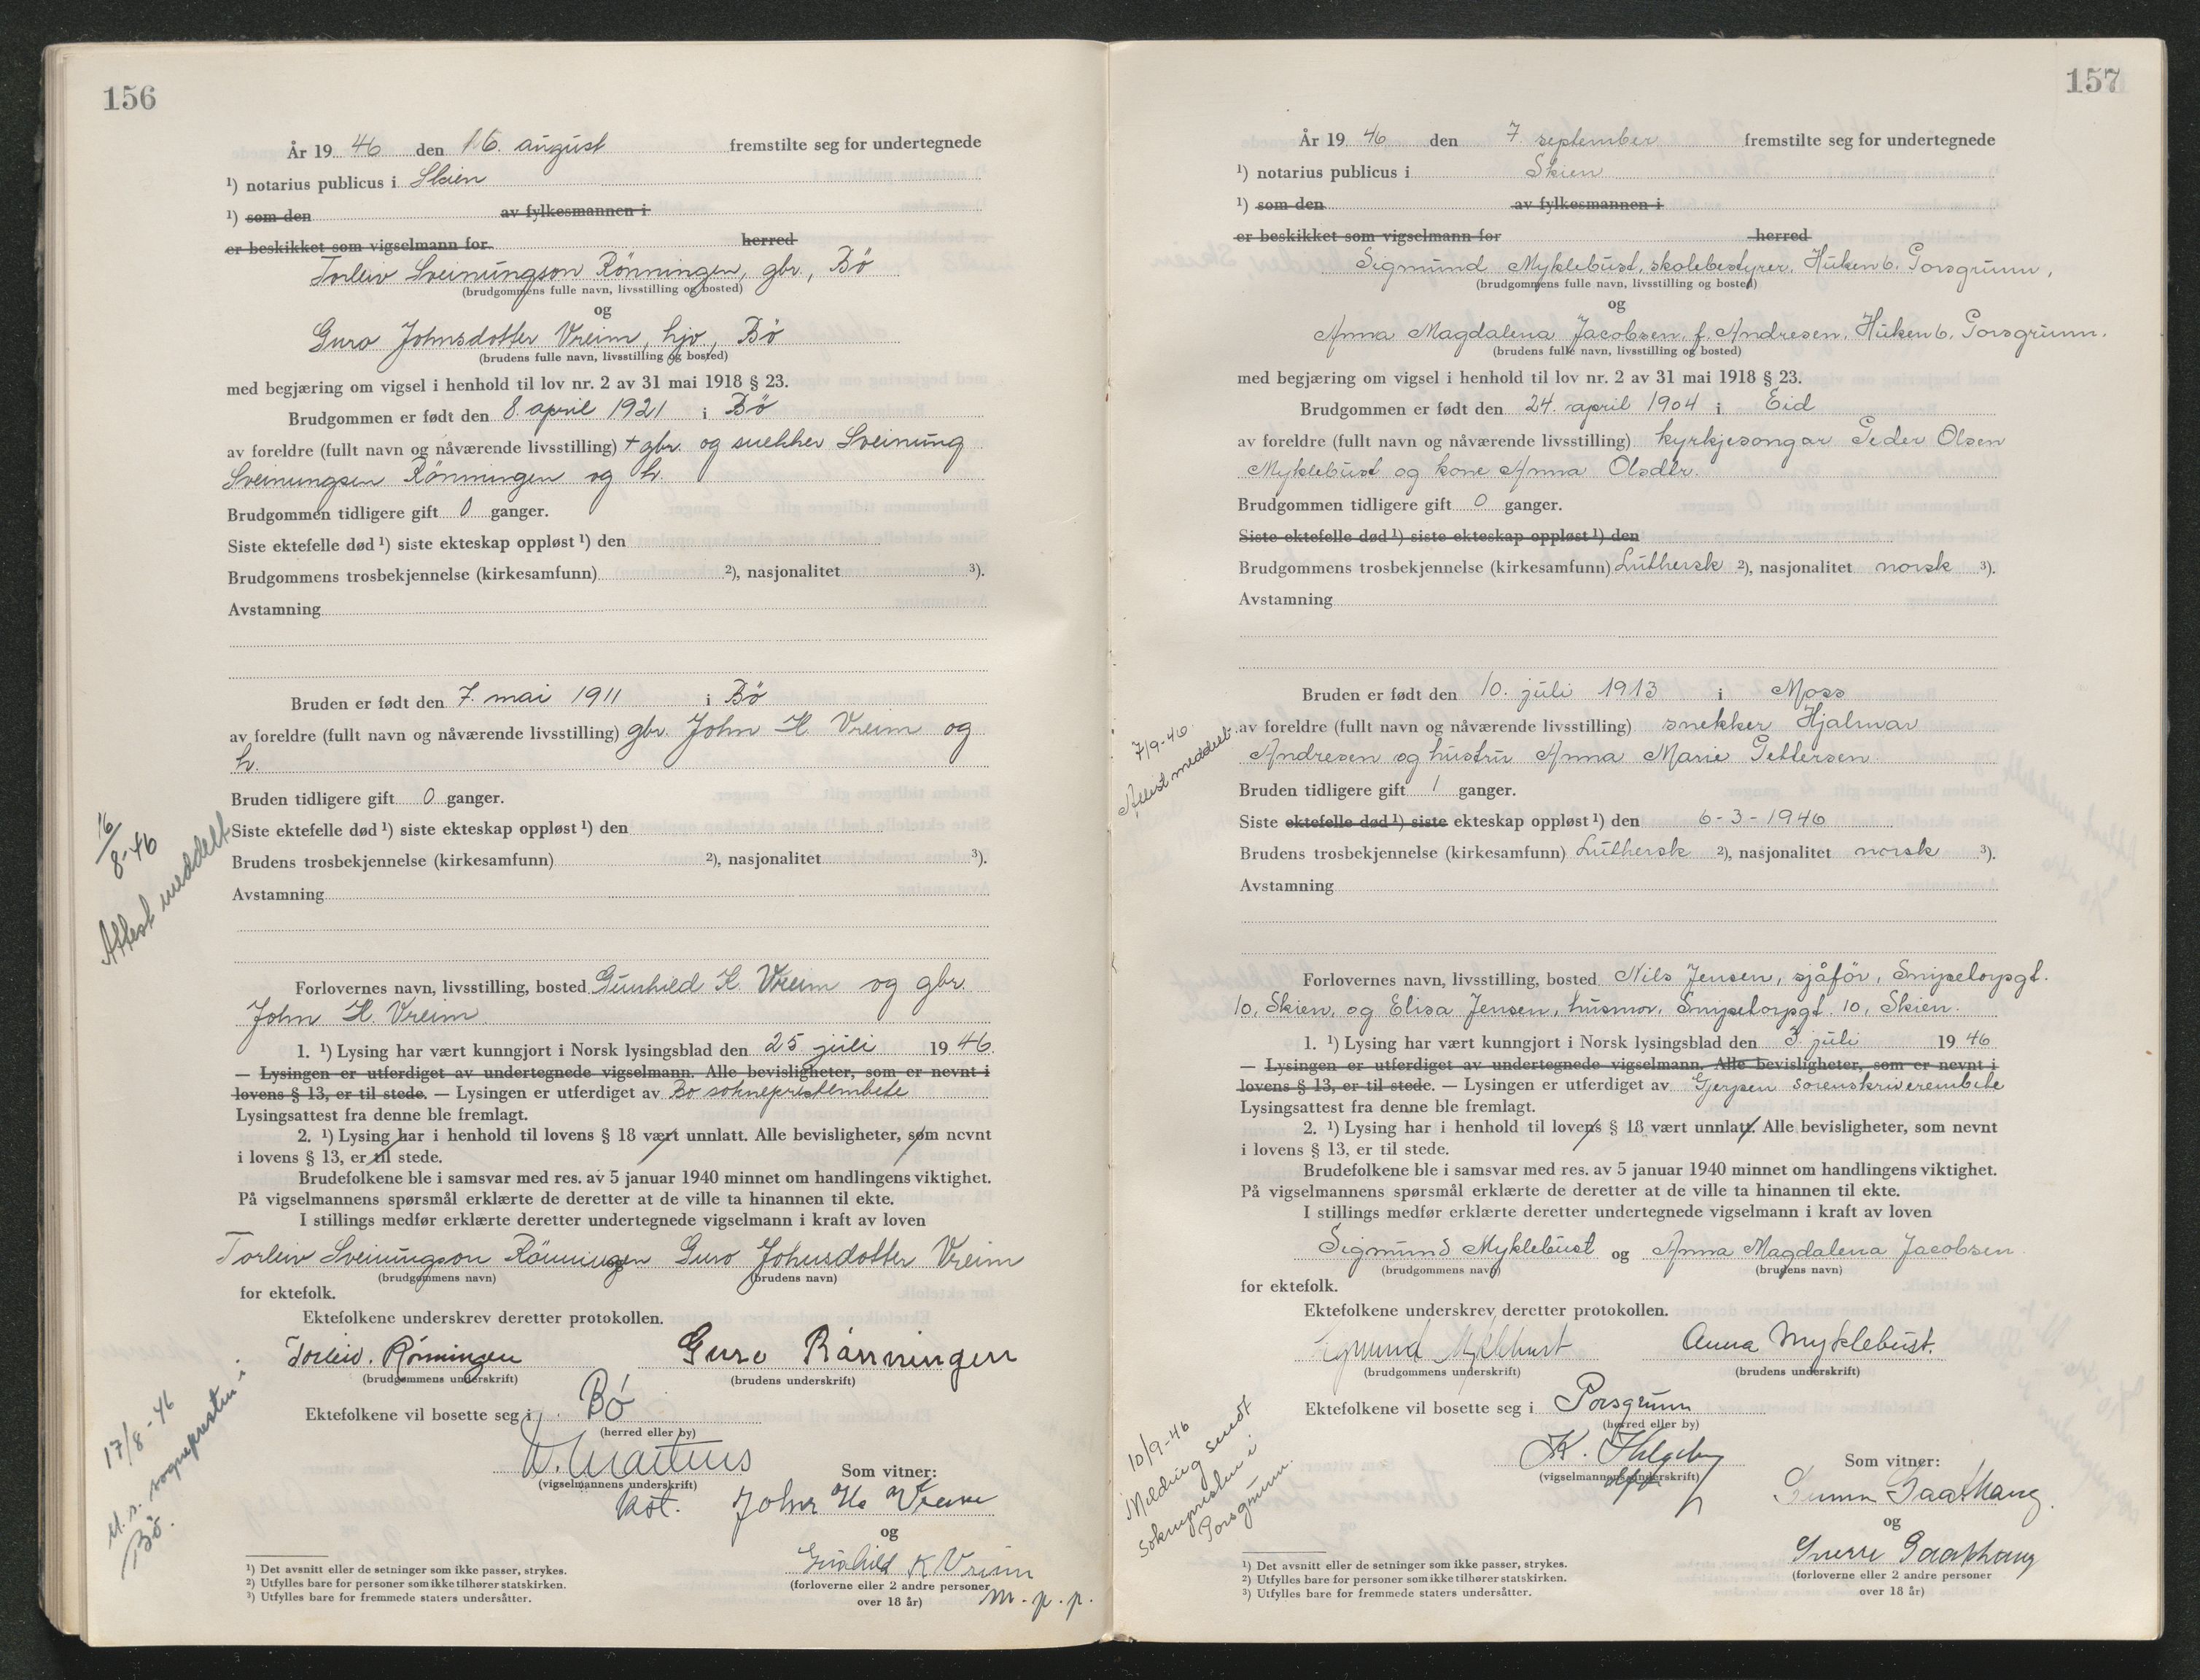 156
År 19 46 den 16. august fremstilte seg for undertegnede
¹) notarius publicus i Skien
¹) som den av fylkesmannen i
er beskikket som vigselmann for herred
Torleiv Sveinungson Rönningen, gbr., Bö
(brudgommens fulle navn, livsstilling og bosted)
og
Guro Johnsdotter Vreim, hjv., Bö
(brudens fulle navn, livsstilling og bosted)
med begjæring om vigsel i henhold til lov nr. 2 av 31 mai 1918 § 23.
Brudgommen er født den 8. april 1921 i Bö
av foreldre (fullt navn og nåværende livsstilling) + gbr. og snekker Sveinung
Sveinungsen Rönningen og h.
Brudgommen tidligere gift 0 ganger.
Siste ektefelle død ¹) siste ekteskap oppløst ¹) den
Brudgommens trosbekjennelse (kirkesamfunn) ²), nasjonalitet ³).
Avstamning
Bruden er født den 7. mai 1911 i Bö
av foreldre (fullt navn og nåværende livsstilling) gbr. John H. Vreim og
h.
Bruden tidligere gift 0 ganger.
Siste ektefelle død ¹) siste ekteskap oppløst ¹) den
Brudens trosbekjennelse (kirkesamfunn) ²), nasjonalitet ³).
Avstamning
16/8-46
Attest meddelt
Forlovernes navn, livsstilling, bosted Gunhild K. Vreim og gbr.
John H. Vreim.
1. ¹) Lysing har vært kunngjort i Norsk lysingsblad den 25 juli 19 46.
— Lysingen er utferdiget av undertegnede vigselmann. Alle bevisligheter, som er nevnt i
lovens § 13, er til stede. — Lysingen er utferdiget av Bö sokneprestembete
Lysingsattest fra denne ble fremlagt.
2. ¹) Lysing har i henhold til lovens § 18 vært unnlatt. Alle bevisligheter, som nevnt
i lovens § 13, er til stede.
Brudefolkene ble i samsvar med res. av 5 januar 1940 minnet om handlingens viktighet.
På vigselmannens spørsmål erklærte de deretter at de ville ta hinannen til ekte.
I stillings medfør erklærte deretter undertegnede vigselmann i kraft av loven
Torleiv Sveinungson Rönningen Guro Johnsdotter Vreim
(brudgommens navn) (brudens navn)
for ektefolk.
Ektefolkene underskrev deretter protokollen.
Torleiv. Rønningen Guro Rönningen
(brudgommens underskrift) (brudens underskrift)
Ektefolkene vil bosette seg i Bö
(herred eller by)
(vigselmannens underskrift)
Som vitner:
kst. John H. Vreim
og
Gunhild K Vreim
(forloverne eller 2 andre personer
over 18 år) m.p.p.
17/8-46
M. s. sognepresten i
Bö.
¹) Det avsnitt eller de setninger som ikke passer, strykes.
²) Utfylles bare for personer som ikke tilhører statskirken.
³) Utfylles bare for fremmede staters undersåtter.
157
År 19 46 den 7. september fremstilte seg for undertegnede
¹) notarius publicus i Skien
¹) som den av fylkesmannen i
er beskikket som vigselmann for herred
Sigmund Myklebust, skolebestyrer, Huken 6. Porsgrunn,
(brudgommens fulle navn, livsstilling og bosted)
og
Anna Magdalena Jacobsen, f. Andresen, Huken 6, Porsgrunn.
(brudens fulle navn, livsstilling og bosted)
med begjæring om vigsel i henhold til lov nr. 2 av 31 mai 1918 § 23.
Brudgommen er født den 24. april 1904 i Eid
av foreldre (fullt navn og nåværende livsstilling) kyrkjesongar Peder Olsen
Myklebust og kone Anna Olsdtr.
Brudgommen tidligere gift 0 ganger.
Siste ektefelle død ¹) siste ekteskap oppløst ¹) den
Brudgommens trosbekjennelse (kirkesamfunn) Luthersk ²), nasjonalitet norsk ³).
Avstamning
Bruden er født den 10. juli 1913 i Moss
av foreldre (fullt navn og nåværende livsstilling) snekker Hjalmar
Andresen og hustru Anna Marie Pettersen
Bruden tidligere gift 1 ganger.
Siste ektefelle død ¹) siste ekteskap oppløst ¹) den 6-3-1946
Brudens trosbekjennelse (kirkesamfunn) Luthersk ²), nasjonalitet norsk ³).
Avstamning
7/9-46.
Attest meddelt.
Forlovernes navn, livsstilling, bosted Nils Jensen, sjåför, Snipetorpgt.
10, Skien, og Elisa Jensen, husmor, Snipetorpgt. 10, Skien.
1. ¹) Lysing har vært kunngjort i Norsk lysingsblad den 3. juli 19 46
— Lysingen er utferdiget av undertegnede vigselmann. Alle bevisligheter, som er nevnt i
lovens § 13, er til stede. — Lysingen er utferdiget av Gjerpen sorenskriverembete
Lysingsattest fra denne ble fremlagt.
2. ¹) Lysing har i henhold til lovens § 18 vært unnlatt. Alle bevisligheter, som nevnt
i lovens § 13, er til stede.
Brudefolkene ble i samsvar med res. av 5 januar 1940 minnet om handlingens viktighet.
På vigselmannens spørsmål erklærte de deretter at de ville ta hinannen til ekte.
I stillings medfør erklærte deretter undertegnede vigselmann i kraft av loven
Sigmund Myklebust og Anna Magdalena Jacobsen
(brudgommens navn) (brudens navn)
for ektefolk.
Ektefolkene underskrev deretter protokollen.
Sigmund Myklebust Anna Myklebust.
(brudgommens underskrift) (brudens underskrift)
Ektefolkene vil bosette seg i Porsgrunn
(herred eller by)
K.
(vigselmannens underskrift)
Som vitner:
Gunn Gaaskang
og
Sverre Gaaskang
(forloverne eller 2 andre personer
over 18 år)
10/9-46
Melding sendt
soknepresten i
Porsgrunn.
¹) Det avsnitt eller de setninger som ikke passer, strykes.
²) Utfylles bare for personer som ikke tilhører statskirken.
³) Utfylles bare for fremmede staters undersåtter.